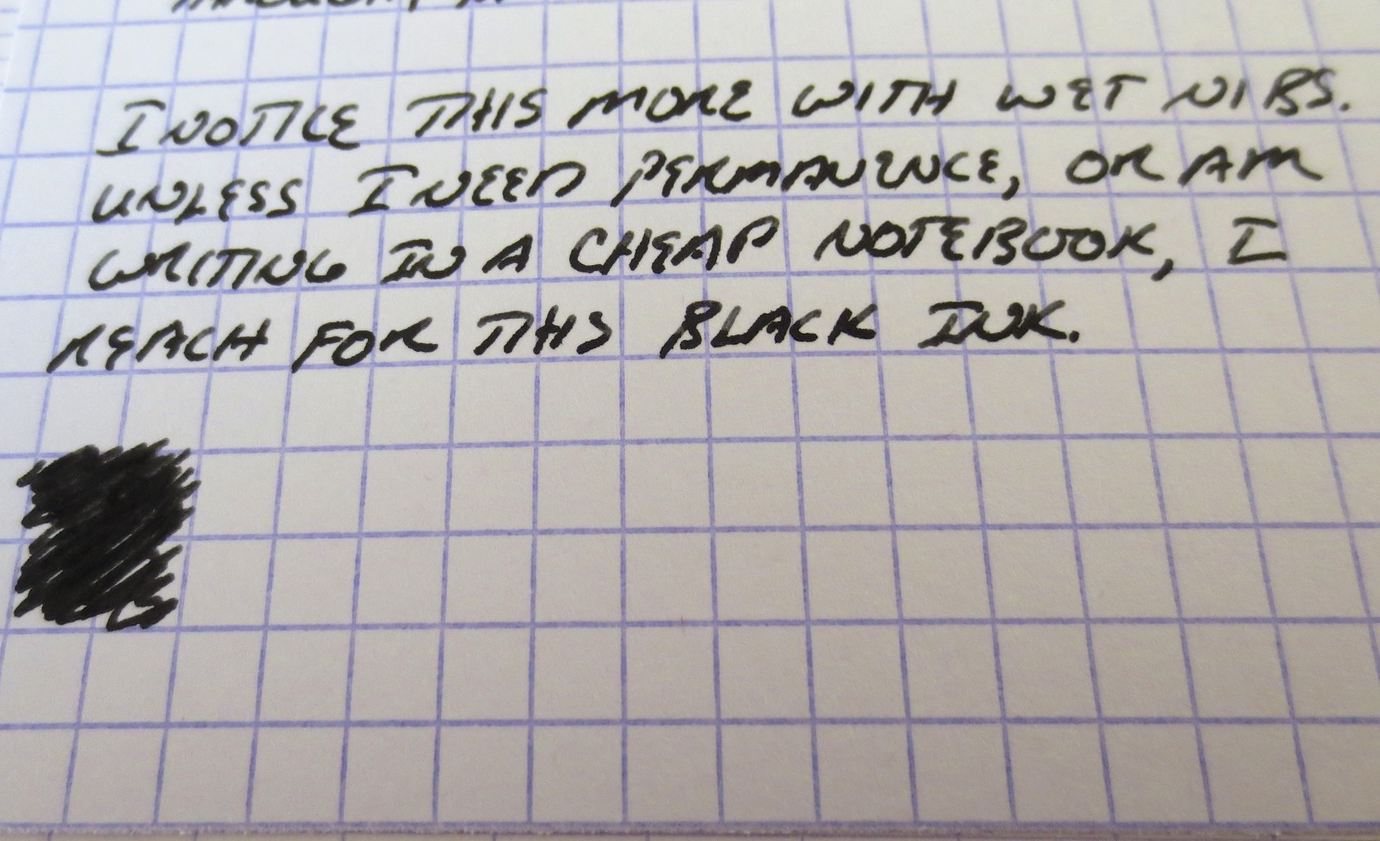 I NOTICE THIS MORE WITH WET NIBS.
UNLESS I NEED PERMANENCE, OR AM
WRITING IN A CHEAP NOTEBOOK, I
REACH FOR THIS BLACK INK.